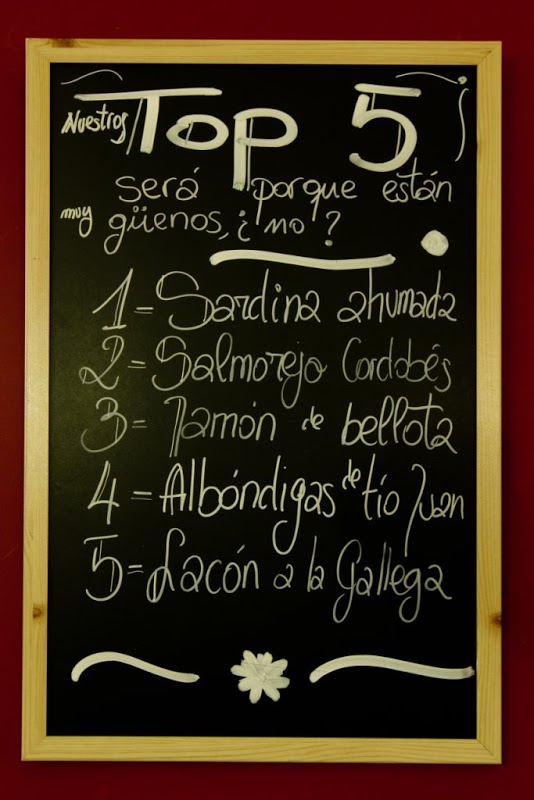 Nuestros Top 5
será porque están
muy güenos, ¿no?
1=Sardina ahumada
2=Salmorejo Cordobés
3=Jamón de bellota
4=Albóndigas de tío Juan
5=Lacón a la Gallega